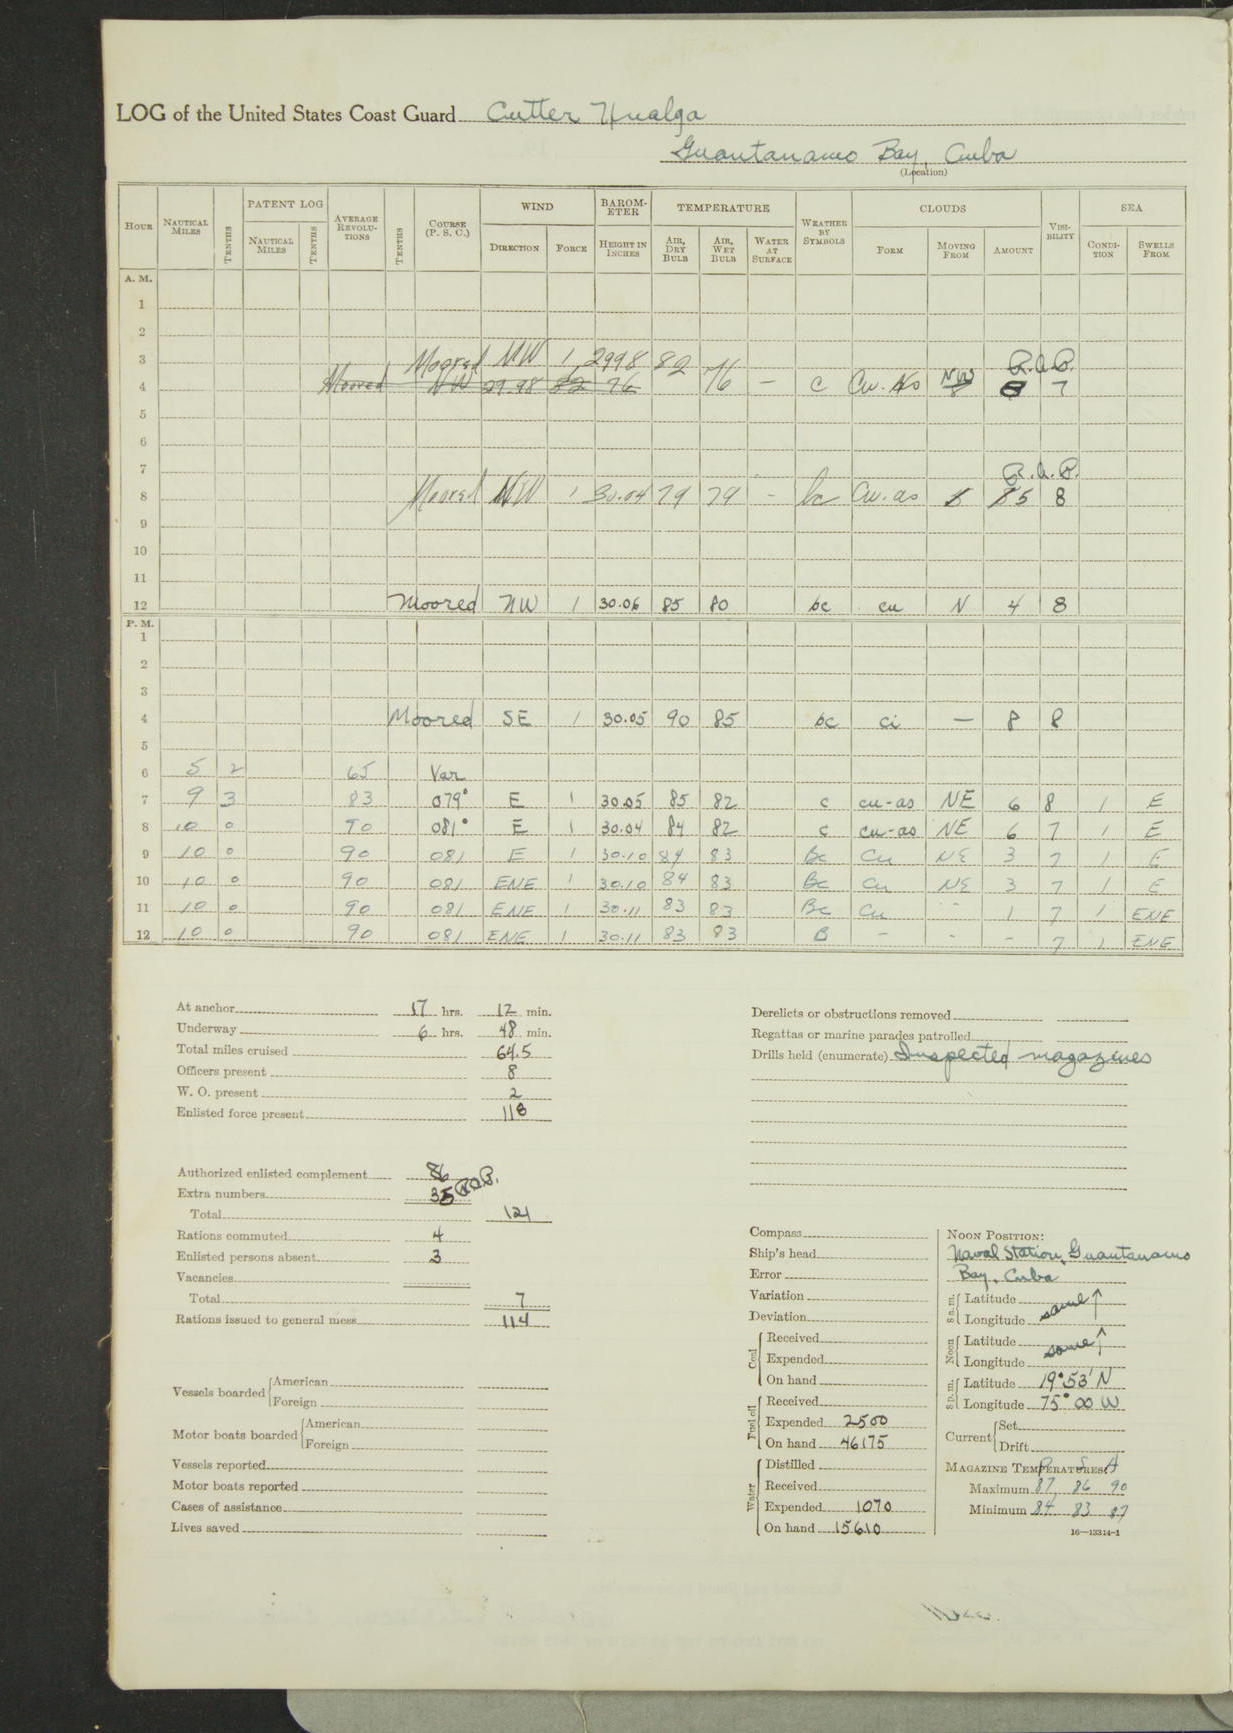 LOG of the United States Coast Guard Cutter Unalga
Guantanamo Bay, Cuba
(Location)
HOUR NAUTICAL MILES TENTHS PATENT LOG NAUTICAL MILES TENTHS AVERAGE REVOLUTIONS TENTHS COURSE (P. S. C.) WIND DIRECTION FORCE BAROMETER HEIGHT IN INCHES TEMPERATURE AIR, DRY BULB AIR, WET BULB WATER AT SURFACE WEATHER BY SYMBOLS CLOUDS FORM MOVING FROM AMOUNT VISIBILITY SEA CONDITION SWELLS FROM
A. M.
1
2
3 Moored NW 1 2998 82 R.A.P.
4 Moored NW 29.98 82 76 76 – c Cu. As NW 8 7
5
6
7 R.A.P.
8 Moored NW 1 30.04 79 79 – bc Cu. as 5 8
9
10
11
12 Moored NW 1 30.06 85 80 bc cu N 4 8
P. M.
1
2
3
4 Moored SE 1 30.05 90 85 bc ci — 8 8
5
6 5 2 65 Var
7 9 3 83 079° E 1 30.05 85 82 c cu-as NE 6 8 1 E
8 10 0 90 081° E 1 30.04 84 82 c cu-as NE 6 7 1 E
9 10 0 90 081 E 1 30.10 84 83 Bc Cu NE 3 7 1 E
10 10 0 90 081 ENE 1 30.10 84 83 Bc Cu NE 3 7 1 E
11 10 0 90 081 ENE 1 30.11 83 83 Bc Cu - 1 7 1 ENE
12 10 0 90 081 ENE 1 30.11 83 83 B - - - 7 1 ENE
At anchor 17 hrs. 12 min.
Underway 6 hrs. 48 min.
Total miles cruised 64.5
Officers present 8
W. O. present 2
Enlisted force present 118
Authorized enlisted complement 86
Extra numbers 35 R.A.P.
Total 121
Rations commuted 4
Enlisted persons absent 3
Vacancies
Total 7
Rations issued to general mess 114
Vessels boarded American
Foreign
Motor boats boarded American
Foreign
Vessels reported
Motor boats reported
Cases of assistance
Lives saved
Derelicts or obstructions removed
Regattas or marine parades patrolled
Drills held (enumerate) Inspected magazines
Compass
Ship's head
Error
Variation
Deviation
Coal Received
Expended
On hand
Fuel oil Received
Expended 2500
On hand 46175
Water Distilled
Received
Expended 1070
On hand 15610
NOON POSITION:
Naval Station, Guantanamo
Bay, Cuba
8 a. m. Latitude
Longitude same ↑
Noon Latitude
Longitude same ↑
8 p. m. Latitude 19°53' N
Longitude 75° 00 W
Current Set
Drift
MAGAZINE TEMPERATURES: P S A
Maximum 87 86 90
Minimum 84 83 87
16—13314-1